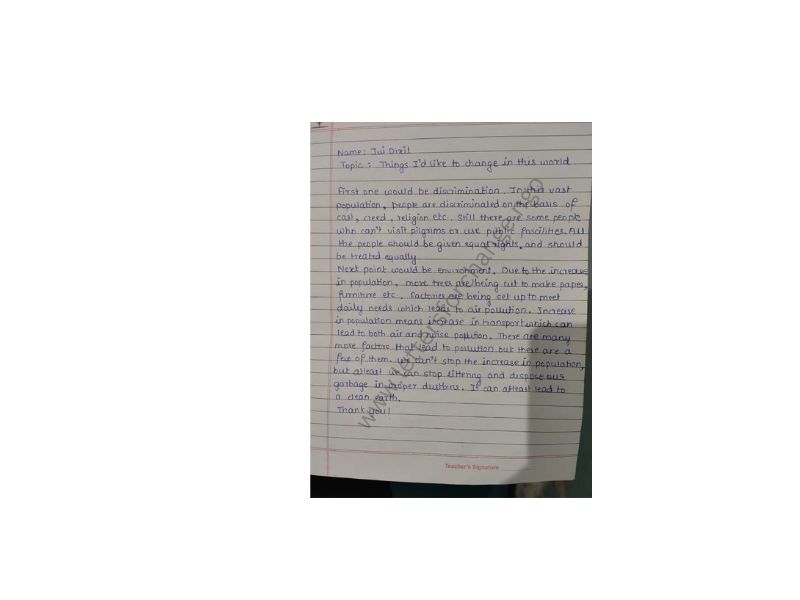 Name: Jui Dixit
Topic: Things I'd like to change in this world.
First one would be discrimination. In this vast
population, people are discriminated on the basis of
cast, creed, religion etc. Still there are some people
who can't visit pilgrims or use public facilities. All
the people should be given equal rights, and should
be treated equally.
Next point would be environment. Due to the increase
in population, more trees are being cut to make paper,
furniture etc. factories are being set up to meet
daily needs which leads to air pollution. Increase
in population means increase in transport which can
lead to both air and noise pollution. There are many
more factors that lead to pollution but these are a
few of them. We can't stop the increase in population,
but atleast we can stop littering and dispose our
garbage in proper dustbins. It can atleast lead to
a clean earth.
Thank you!
Teacher's Signature
www.lettersforchange.in